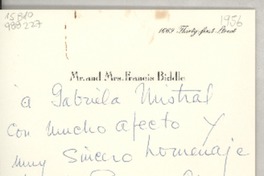 15810
988227
1956
1669 Thirty-first Street
Mr. and Mrs. Francis Biddle
a Gabriela Mistral
con mucho afecto y
muy sincero homenaje